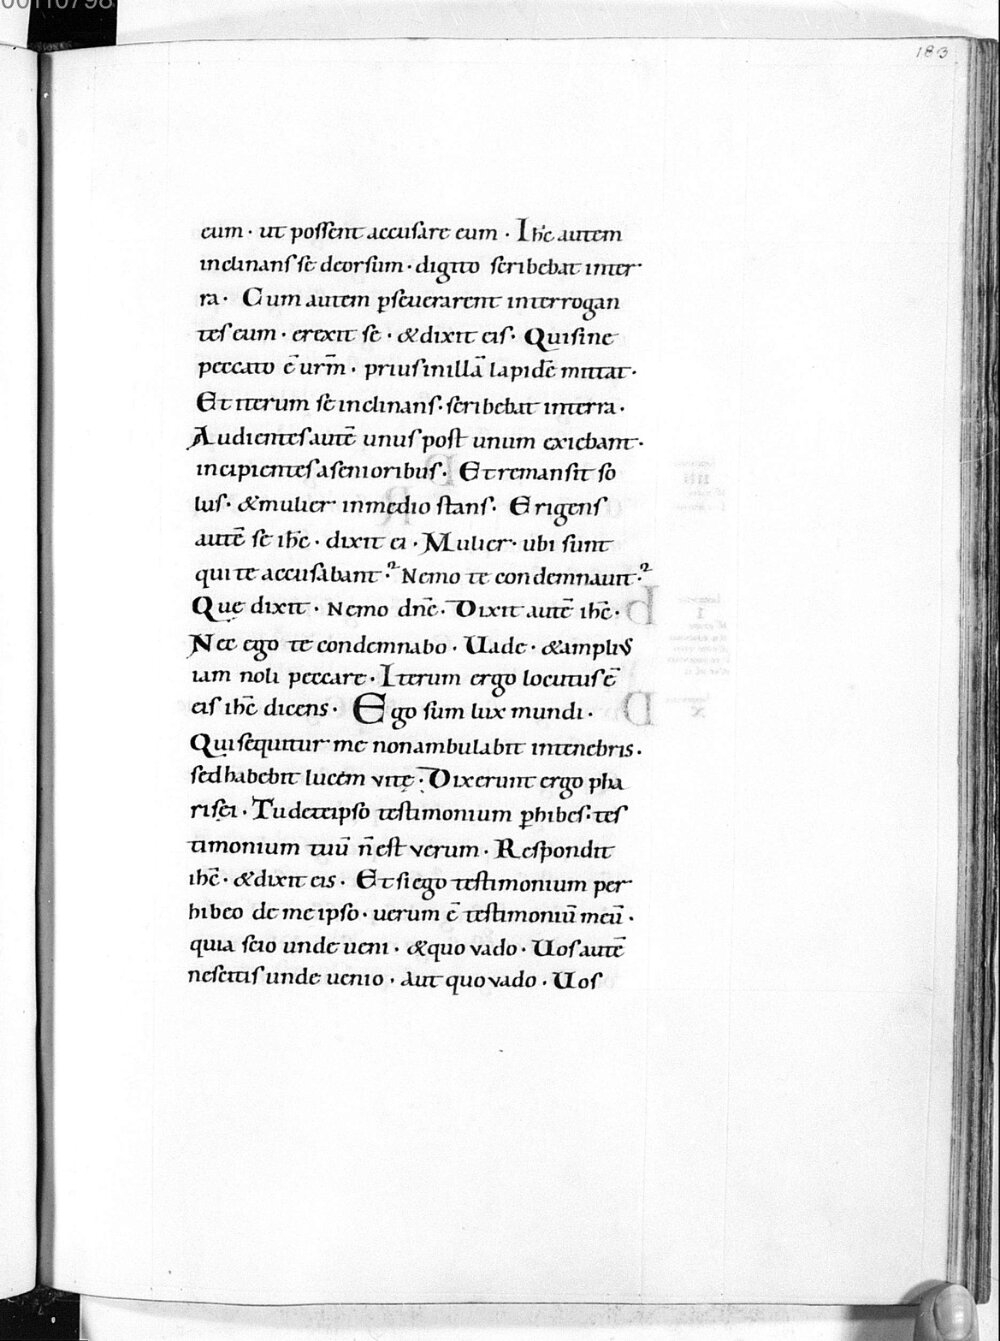 00110798
183
eum · ut possent accusare eum · Ihc̄ autem
inclinans se deorsum · digito scribebat inter
ra · Cum autem p̱seuerarent interrogan
tes eum · erexit se · & dixit eis · Qui sine
peccato ē urm̄ · prius in illā lapidē mittat ·
Et iterum se inclinans · scribebat interra ·
Audientes autē unus post unum exiebant ·
incipientes a senioribus · Et remansit so
lus · & mulier in medio stans · Erigens
autē se ihc̄ · dixit ei · Mulier · ubi sunt
qui te accusabant? Nemo te condemnauit?
Quę dixit · Nemo dn̄e · Dixit autē ihc̄ ·
Nec ego te condemnabo · Uade · & amplius
iam noli peccare · Iterum ergo locutus ē
eis ihc̄ dicens · Ego sum lux mundi ·
Qui sequitur me non ambulabit in tenebris ·
sed habebit lucem vitę · Dixerunt ergo pha
risęi · Tu de te ipso testimonium p̱hibes · tes
timonium tuū n̄ est verum · Respondit
ihc̄ · & dixit eis · Et si ego testimonium per
hibeo de me ipso · uerum ē testimoniū meū ·
quia scio unde ueni · & quo vado · Uos autē
nescitis unde uenio · aut quo vado · Uos